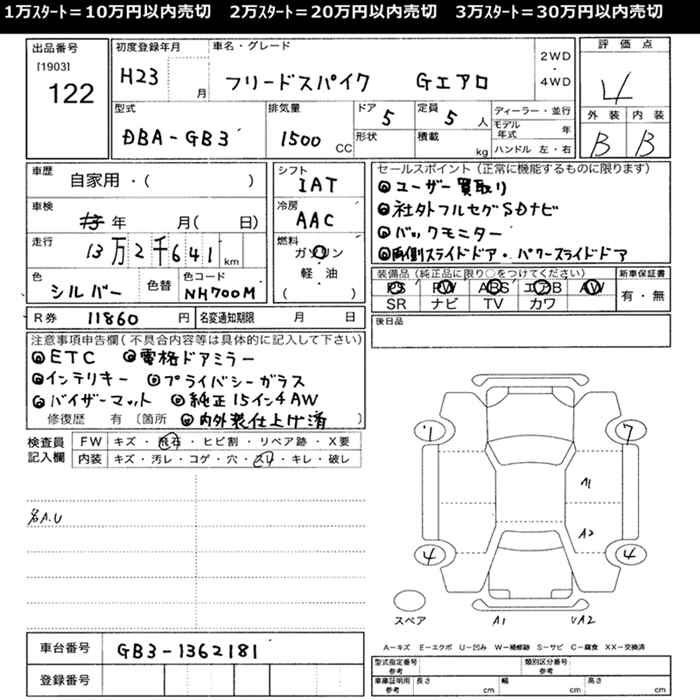 1万ｽﾀｰﾄ＝10万円以内売切　2万ｽﾀｰﾄ＝20万円以内売切　3万ｽﾀｰﾄ＝30万円以内売切
出品番号 [1903] 122
初度登録年月 H23 月
車名・グレード フリードスパイク Gエアロ
2WD ・ 4WD
評価点 4
外装 B 内装 B
型式 DBA-GB3
排気量 1500 CC
ドア 5 形状
定員 5 人 積載 kg
ディーラー・並行
モデル年式 年
ハンドル 左・右
車歴 自家用・( )
シフト IAT
車検 年 月( 日)
冷房 AAC
走行 13万2千641km
燃料 ガソリン 軽油 ( )
色 シルバー 色替 色コード NH700M
R券 11860 円 名変通知期限 月 日
セールスポイント(正常に機能するものに限ります)
◎ユーザー買取り
◎社外フルセグSDナビ
◎バックモニター
◎両側スライドドア・パワースライドドア
装備品(純正品に限り○をつけてください) 新車保証書
PS PW ABS エアB AW 有・無
SR ナビ TV カワ
後日品
注意事項申告欄(不具合内容等は具体的に記入して下さい)
◎ETC ◎電格ドアミラー
◎インテリキー ◎プライバシーガラス
◎バイザーマット ◎純正15インチAW
修復歴 有 〔箇所 ◎内外装仕上げ済
検査員記入欄
FW キズ・飛石・ヒビ割・リペア跡・X要
内装 キズ・汚レ・コゲ・穴・スリ・キレ・破レ
A.U
7 7
A1
A2
4 4
スペア A1 UA2
A−キズ E−エクボ U−凹み W−補修跡 S−サビ C−腐食 XX−交換済
車台番号 GB3-1362181
登録番号
型式指定番号 参考 類別区分番号 参考
車庫証明用 参考 長さ cm 幅 cm 高さ cm